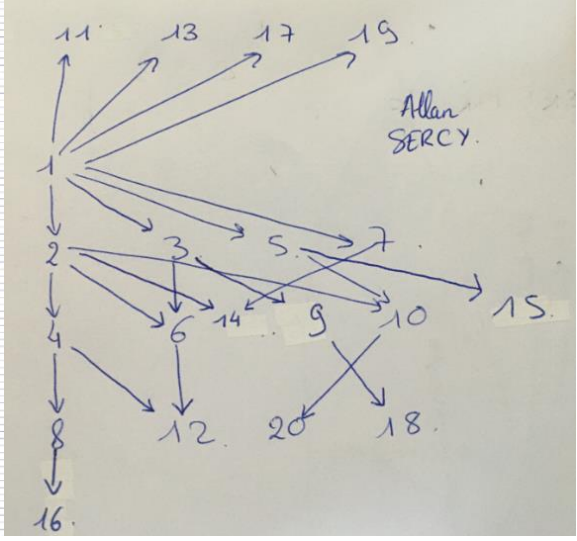 11. 13 17 19.
Allan
SERCY.
1
2 3 5. 7.
4 6 14 9 10 15.
8 12. 20 18.
16.